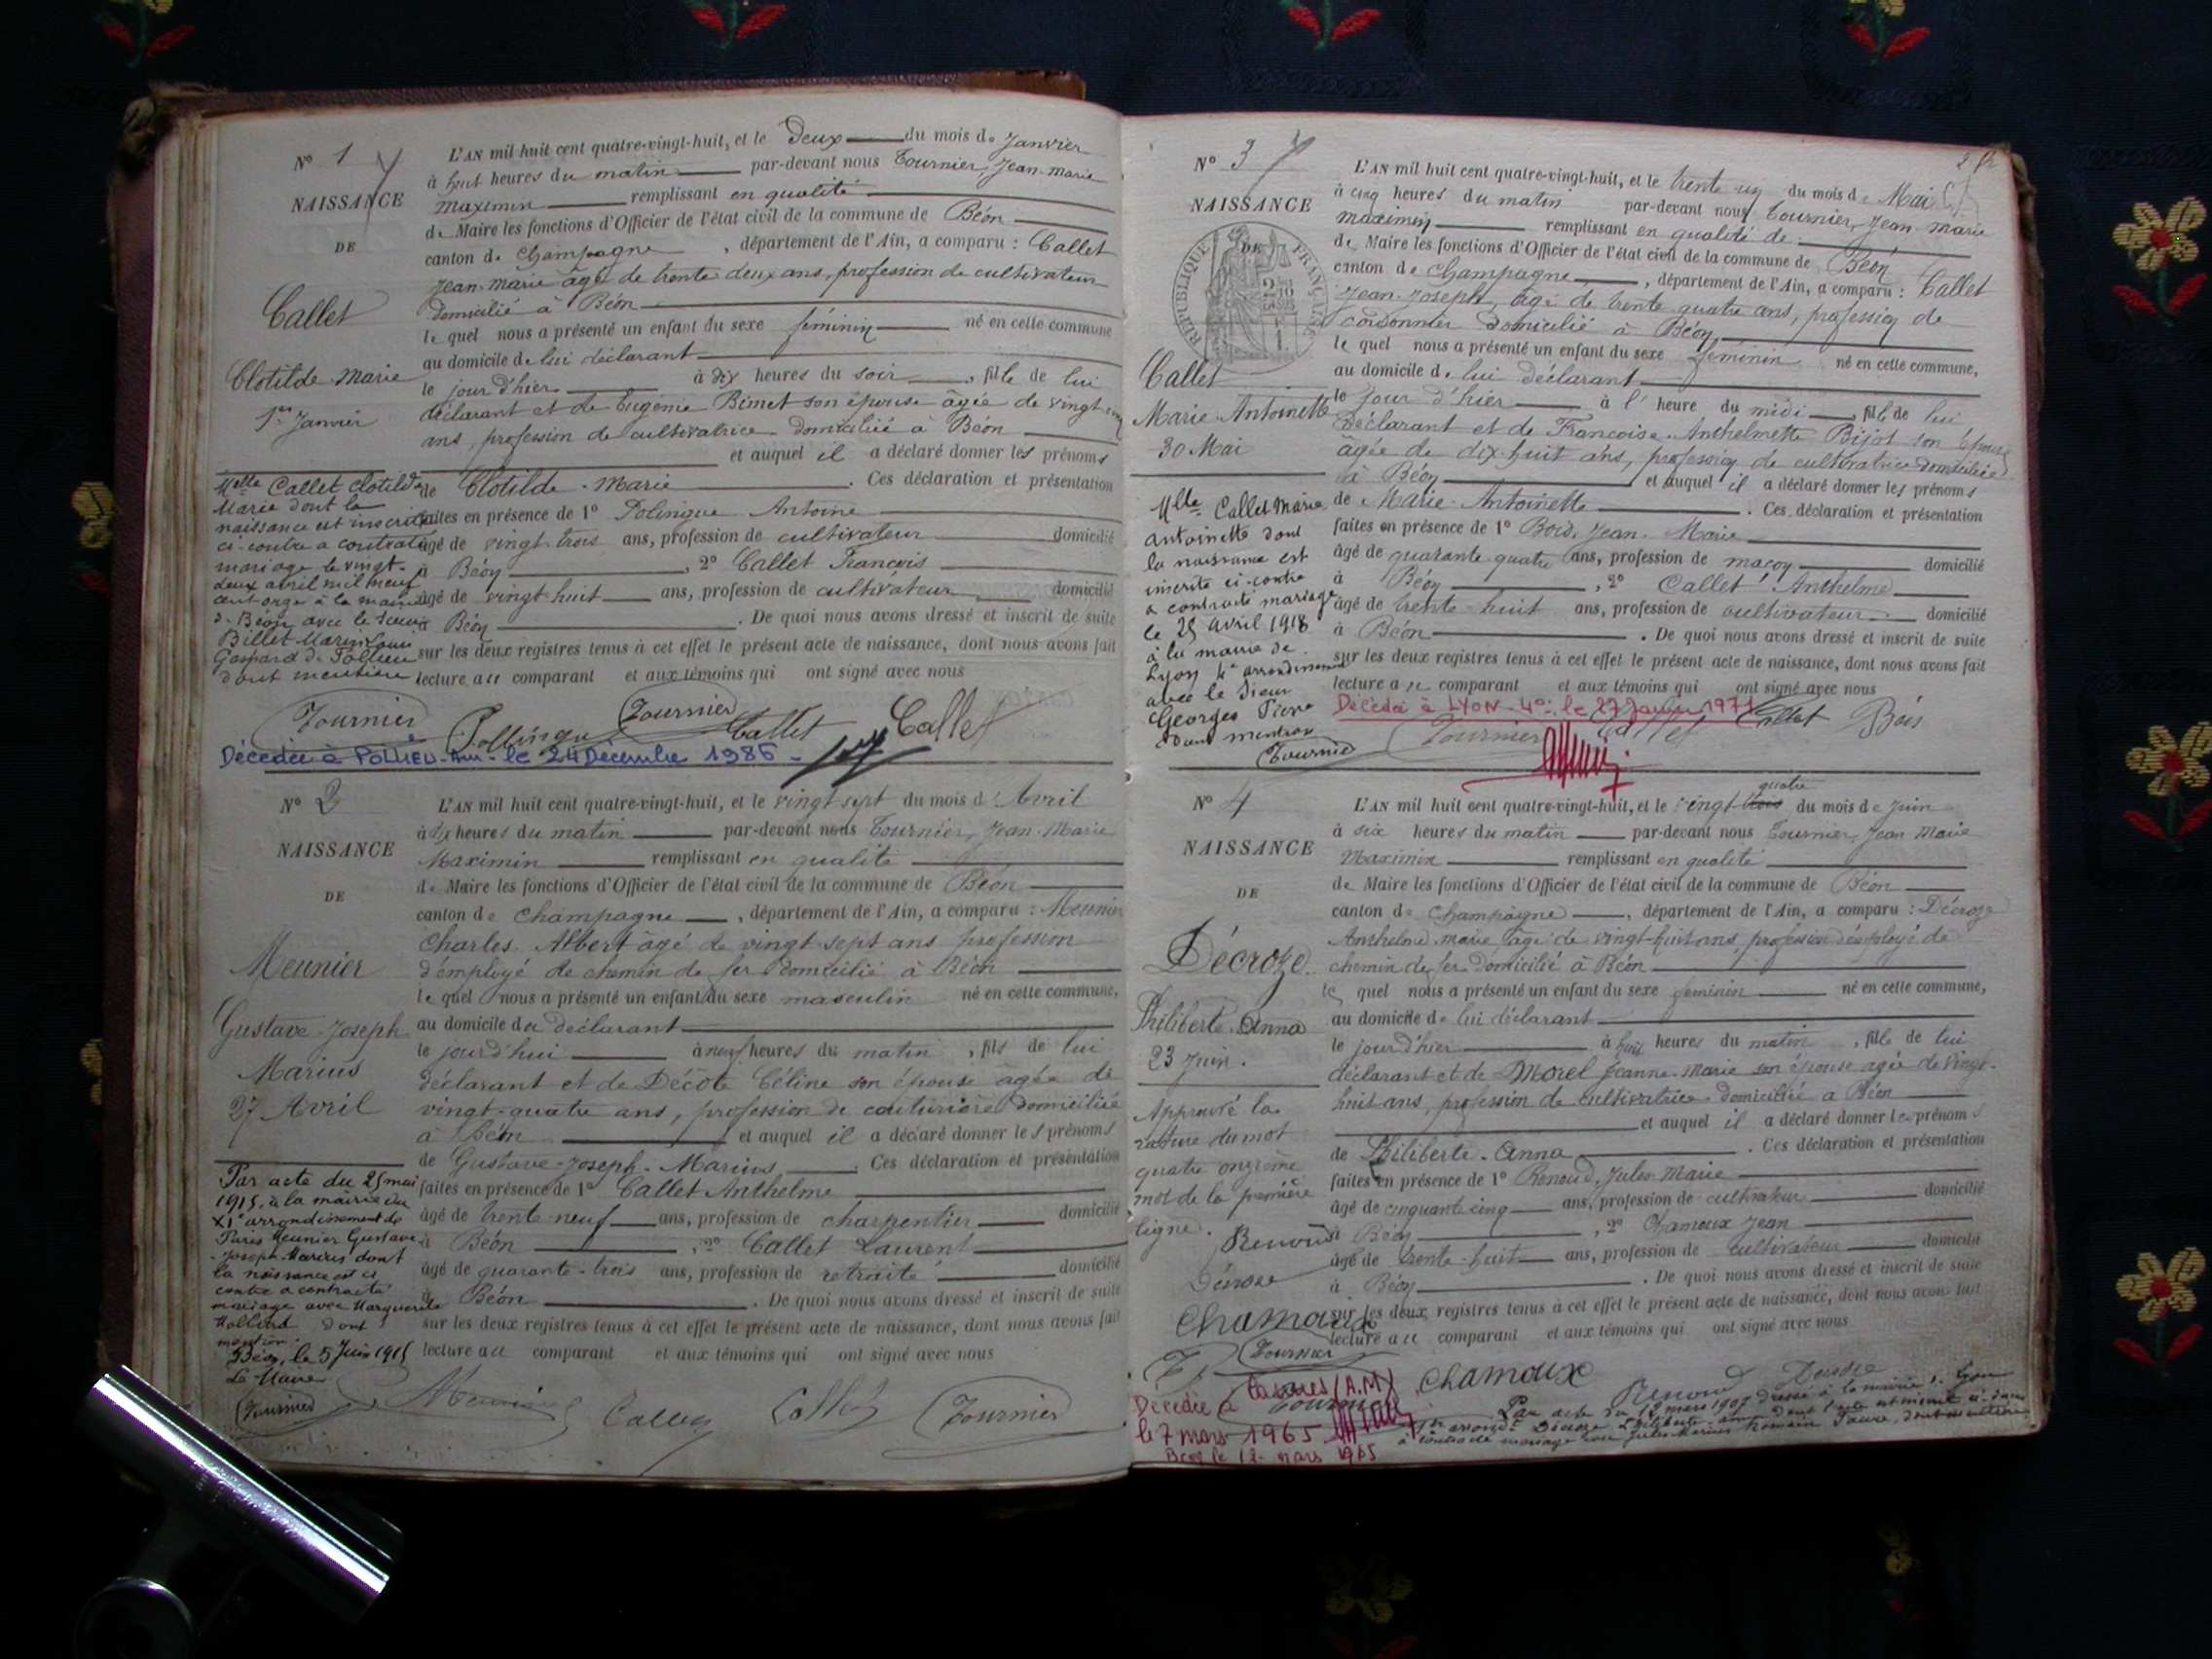 N° 1
NAISSANCE
DE
Callet
Clotilde Marie
1er Janvier
L'AN mil huit cent quatre-vingt-huit, et le Deux du mois de Janvier
à huit heures du matin par-devant nous Tournier, Jean-Marie
Maximin remplissant en qualité
de Maire les fonctions d'Officier de l'état civil de la commune de Béon
canton de Champagne, département de l'Ain, a comparu : Callet
Jean-Marie âgé de trente deux ans, profession de cultivateur
domicilié à Béon
le quel nous a présenté un enfant du sexe féminin né en cette commune
au domicile de lui déclarant
le jour d'hier à dix heures du soir, fille de lui
déclarant et de Eugénie Bimet son épouse âgée de vingt
ans, profession de cultivatrice domiciliée à Béon
et auquel il a déclaré donner les prénoms
de Clotilde-Marie. Ces déclaration et présentation
faites en présence de 1° Polinque Antoine
âgé de vingt trois ans, profession de cultivateur domicilié
à Béon, 2° Callet François
âgé de vingt huit ans, profession de cultivateur domicilié
à Béon. De quoi nous avons dressé et inscrit de suite
sur les deux registres tenus à cet effet le présent acte de naissance, dont nous avons fait
lecture au comparant et aux témoins qui ont signé avec nous
Melle Callet Clotilde
Marie dont la
naissance est inscrite
ci-contre a contracté
mariage le vingt-
deux avril mil neuf
cent onze à la mairie
de Béon avec le sieur
Billet Marin Louis
Gaspard de Pollieu
dont mention
Tournier Pollinque Tournier Callet Callet
Décédée à POLLIEU-Ain- le 24 Décembre 1986 -
N° 2
NAISSANCE
DE
Meunier
Gustave-Joseph
Marius
27 Avril
L'AN mil huit cent quatre-vingt-huit, et le vingt sept du mois d'Avril
à dix heures du matin par-devant nous Tournier, Jean-Marie
Maximin remplissant en qualité
de Maire les fonctions d'Officier de l'état civil de la commune de Béon
canton de Champagne, département de l'Ain, a comparu : Meunier
Charles-Albert âgé de vingt sept ans profession
d'employé de chemin de fer domicilié à Béon
le quel nous a présenté un enfant du sexe masculin né en cette commune,
au domicile du déclarant
le jourd'hui à neuf heures du matin, fils de lui
déclarant et de Décote Céline son épouse âgée de
vingt-quatre ans, profession de couturière domiciliée
à Béon et auquel il a déclaré donner les prénoms
de Gustave-Joseph-Marius. Ces déclaration et présentation
faites en présence de 1° Callet Anthelme
âgé de trente neuf ans, profession de charpentier domicilié
à Béon, 2° Callet Laurent
âgé de quarante-trois ans, profession de retraité domicilié
à Béon. De quoi nous avons dressé et inscrit de suite
sur les deux registres tenus à cet effet le présent acte de naissance, dont nous avons fait
lecture au comparant et aux témoins qui ont signé avec nous
Par acte du 25 mai
1915, à la mairie du
XIe arrondissement de
Paris Meunier Gustave
-Joseph-Marius dont
la naissance est ci
contre a contracté
mariage avec Marguerite
dont
mention.
Béon, le 5 Juin 1915
Le Maire
Tournier Meunier Callet Callet Tournier
N° 3
NAISSANCE
DE
RÉPUBLIQUE FRANÇAISE
Callet
Marie-Antoinette
30 Mai
L'AN mil huit cent quatre-vingt-huit, et le trente un du mois de Mai
à cinq heures du matin par-devant nous Tournier, Jean-Marie
Maximin remplissant en qualité de
de Maire les fonctions d'Officier de l'état civil de la commune de Béon
canton de Champagne, département de l'Ain, a comparu : Callet
Jean-Joseph, âgé de trente quatre ans, profession de
cordonnier domicilié à Béon
le quel nous a présenté un enfant du sexe féminin né en cette commune,
au domicile de lui déclarant
le jour d'hier à l' heure du midi, fille de lui
déclarant et de Françoise-Anthelmette Bijot son épouse
âgée de dix huit ans, profession de cultivatrice domiciliée
à Béon et auquel il a déclaré donner les prénoms
de Marie-Antoinette. Ces déclaration et présentation
faites en présence de 1° Bois, Jean-Marie
âgé de quarante quatre ans, profession de maçon domicilié
à Béon, 2° Callet Anthelme
âgé de trente-huit ans, profession de cultivateur domicilié
à Béon. De quoi nous avons dressé et inscrit de suite
sur les deux registres tenus à cet effet le présent acte de naissance, dont nous avons fait
lecture au comparant et aux témoins qui ont signé avec nous
Mlle Callet Marie
Antoinette dont
la naissance est
inscrite ci-contre
a contracté mariage
le 25 avril 1918
à la mairie de
Lyon 4e arrondissement
avec le Sieur
Georges Pierre
dont mention
Tournier
Décédée à LYON-4e, le 27 Janvier 1971
Tournier Callet Callet Bois
N° 4
NAISSANCE
DE
Décroze
Philiberte-Anna
23 Juin.
quatre
L'AN mil huit cent quatre-vingt-huit, et le vingt-trois du mois de Juin
à six heures du matin par-devant nous Tournier, Jean Marie
Maximin remplissant en qualité
de Maire les fonctions d'Officier de l'état civil de la commune de Béon
canton de Champagne, département de l'Ain, a comparu : Décroze
Anthelme Marie âgé de vingt-huit ans, profession d'employé de
chemin de fer domicilié à Béon
le quel nous a présenté un enfant du sexe féminin né en cette commune,
au domicile de lui déclarant
le jour d'hier à huit heures du matin, fille de lui
déclarant et de Morel Jeanne-Marie son épouse agée de vingt-
huit ans, profession de cultivatrice domiciliée a Béon
et auquel il a déclaré donner les prénoms
de Philiberte-Anna. Ces déclaration et présentation
faites en présence de 1° Renoud, Jules-Marie
âgé de cinquante cinq ans, profession de cultivateur domicilié
à Béon, 2° Chamoux Jean
âgé de trente-huit ans, profession de cultivateur domicilié
à Béon. De quoi nous avons dressé et inscrit de suite
sur les deux registres tenus à cet effet le présent acte de naissance, dont nous avons fait
lecture au comparant et aux témoins qui ont signé avec nous
Approuvé la
rature du mot
quatre onzième
mot de la première
ligne.
Renoud
Décroze
Chamoux
Tournier
Chamoux Renoud Décroze
Décédée à (A.M)
le 7 mars 1965
Béon le 12 mars 1965
Par acte du 12 mars 1907 dressé à la mairie de Lyon
arrondt Décroze Philiberte-Anna dont l'acte est inscrit ci-dessus
a contracté mariage avec Jules Marius Romain Faure, dont mention